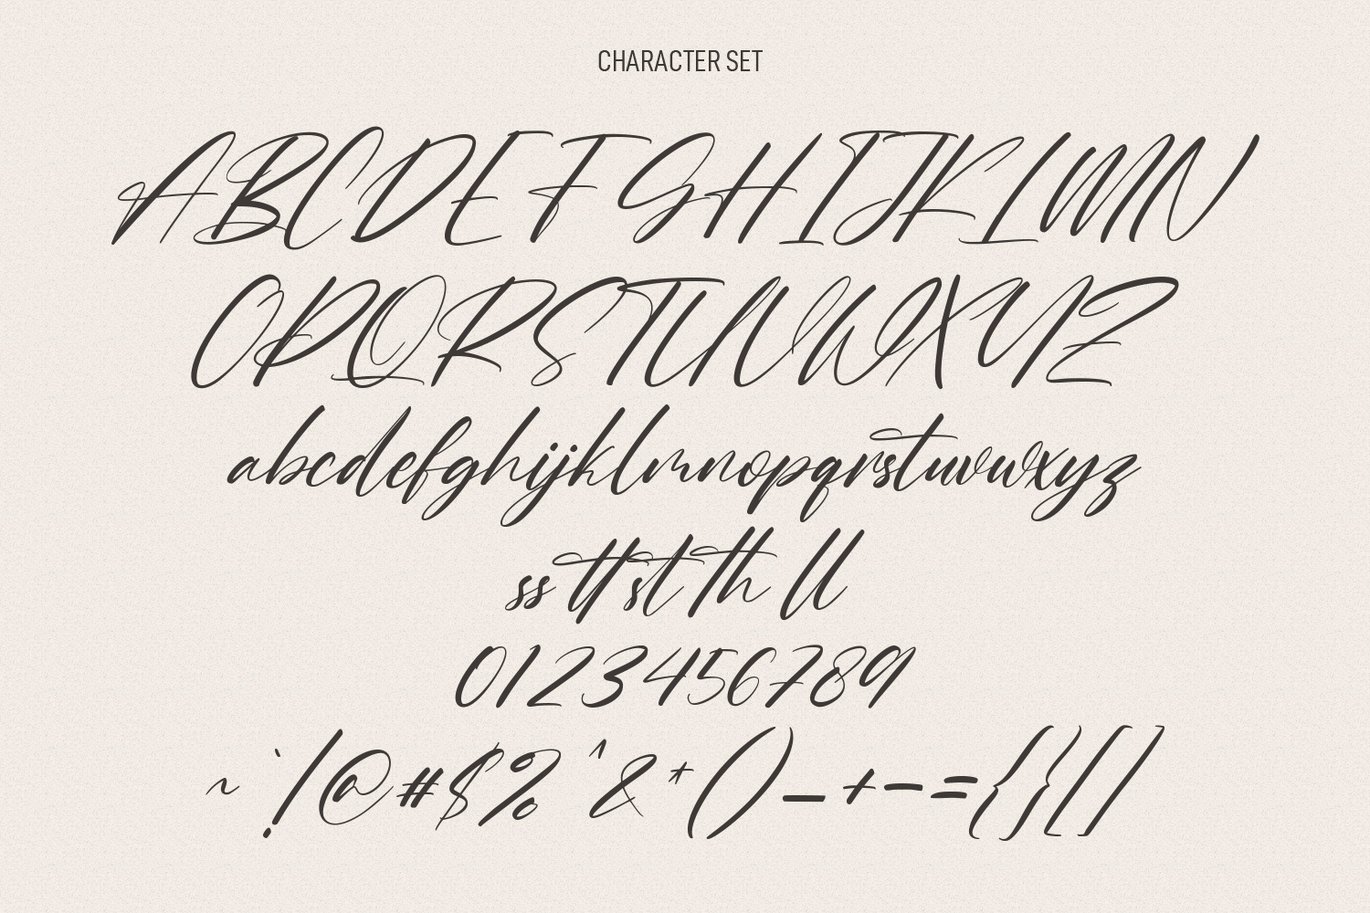 CHARACTER SET
ABCDEFGHIJKLMN
OPQRSTUVWXYZ
abcdefghijklmnopqrstuvwxyz
ss tt st th ll
0123456789
~`!@#$%^&*()_+-={}[]